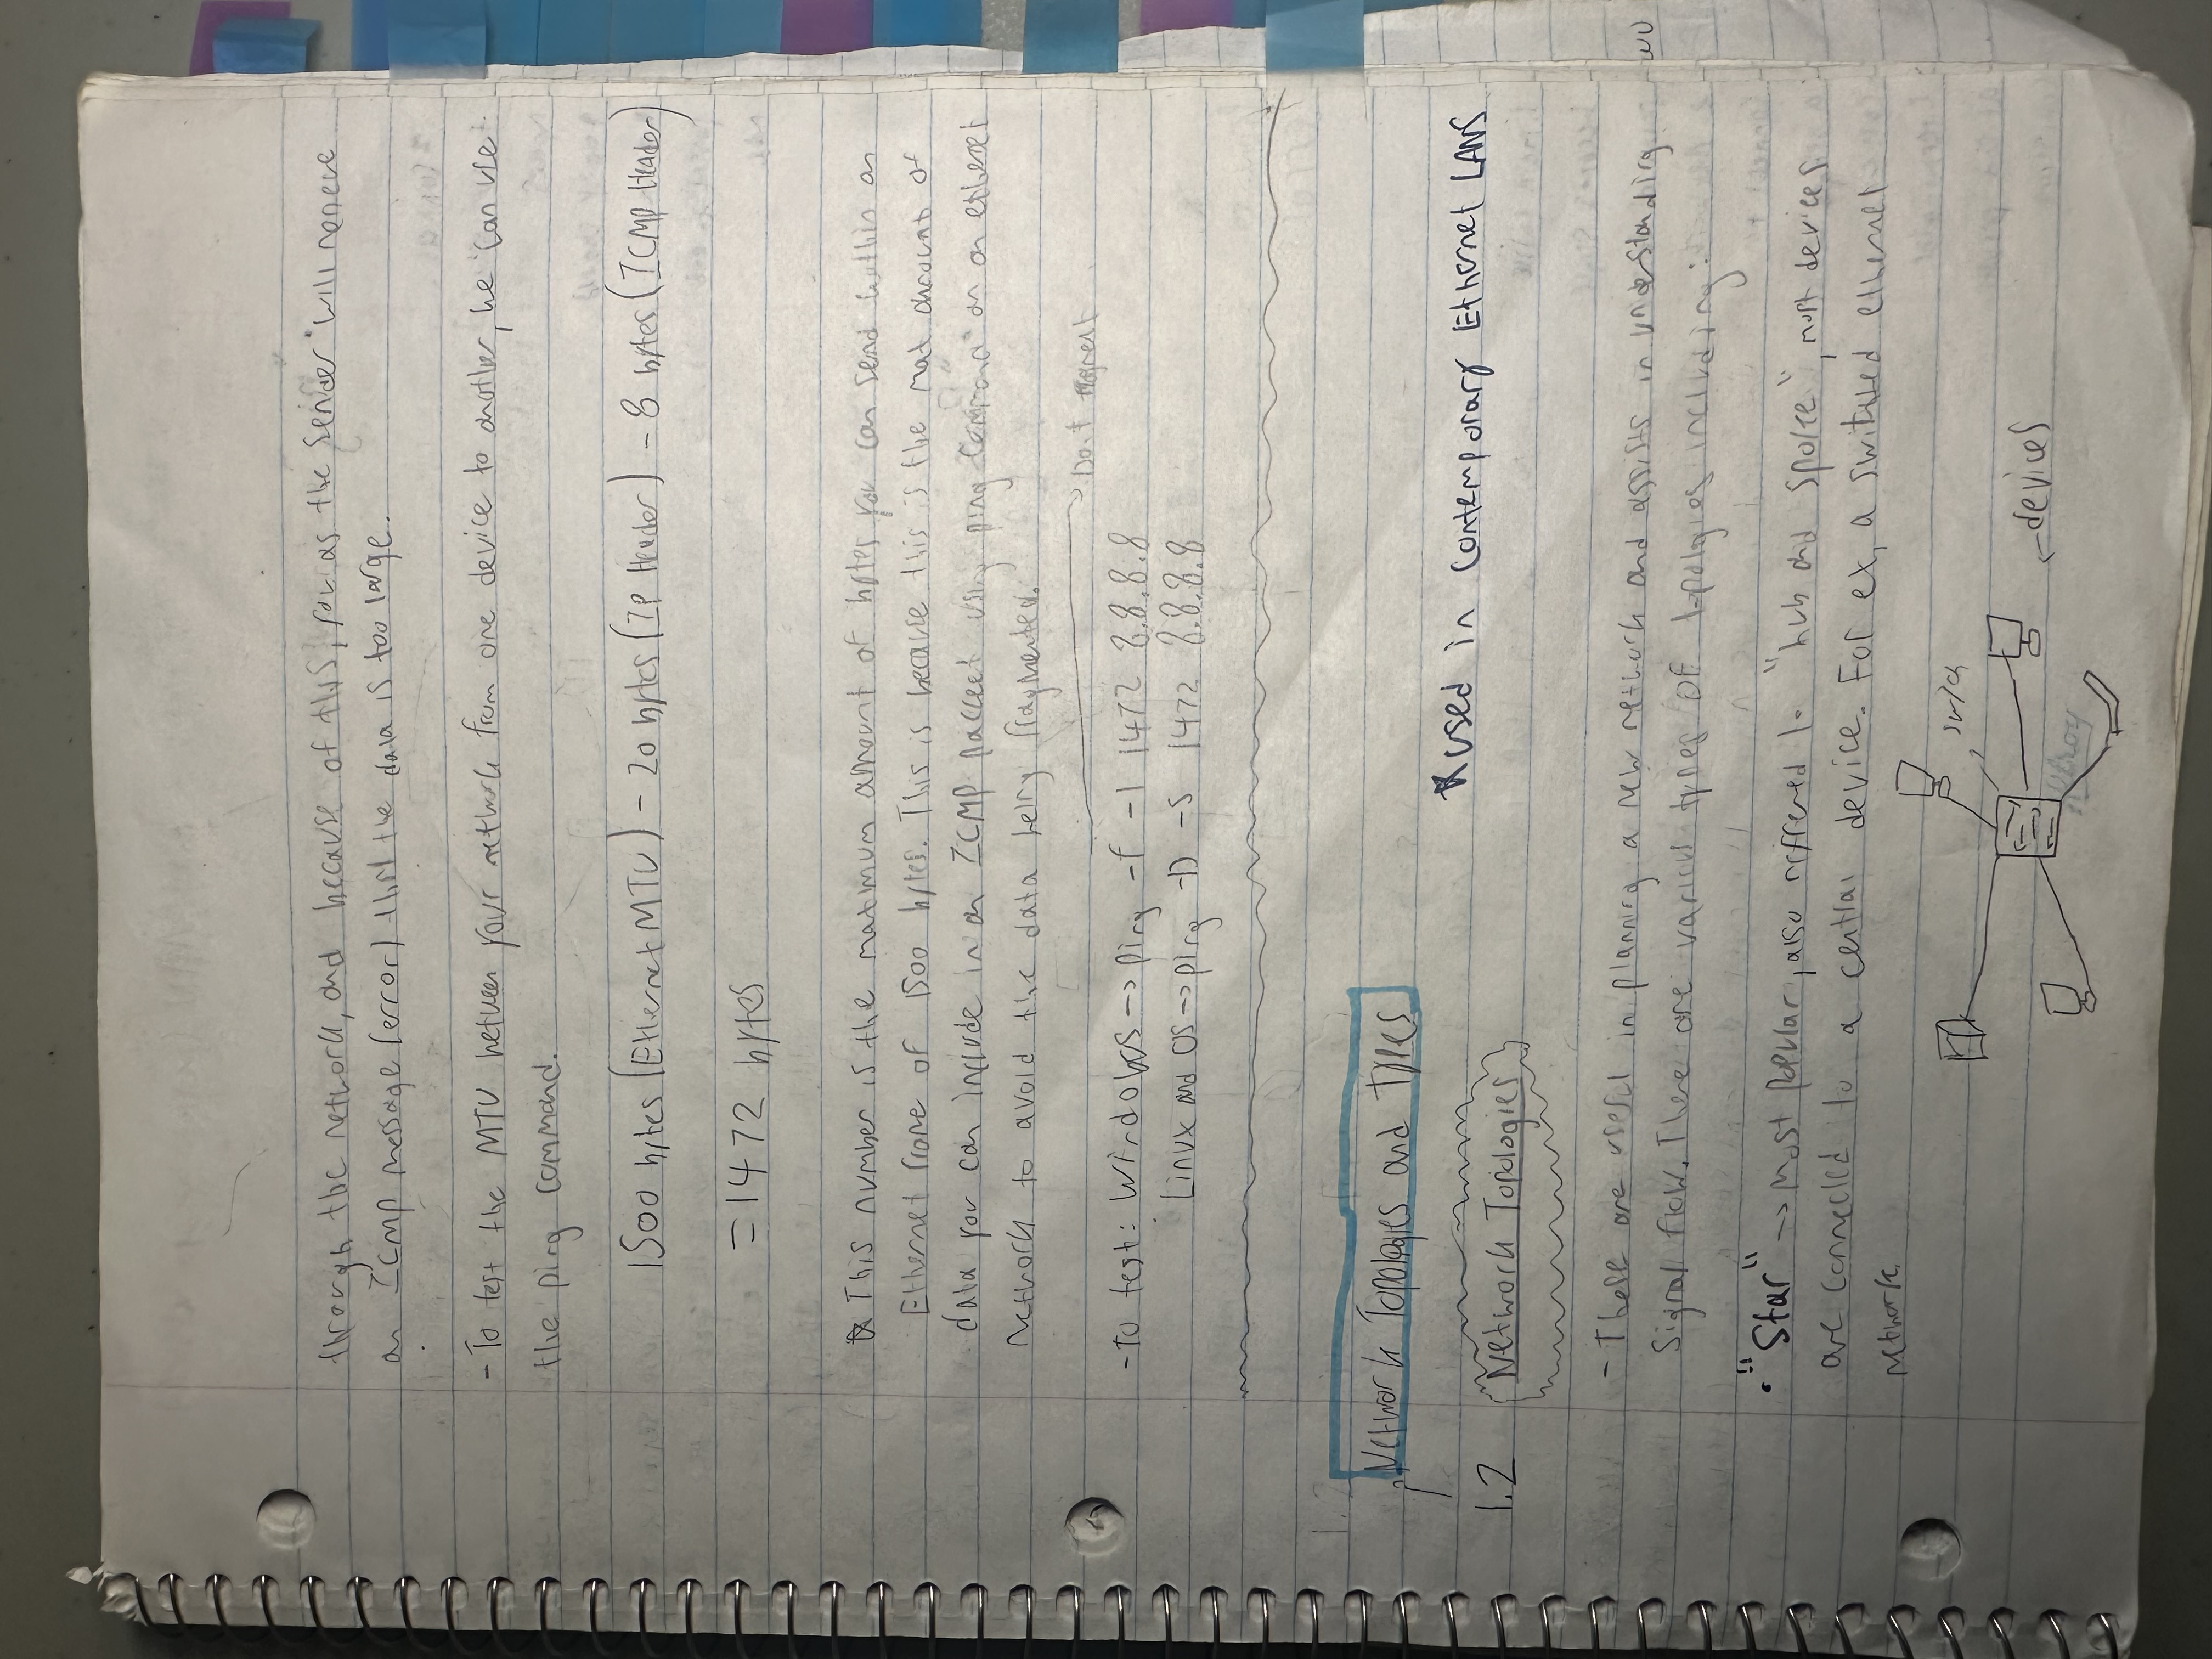 through the network, and because of this, you as the sender will receve
an ICMP message (error) that the data is too large.
- To test the MTU between your network from one device to another, we can use
the ping command.
1500 bytes (Ethernet MTU) - 20 bytes (IP Header) - 8 bytes (ICMP Header)
= 1472 bytes
☆ This number is the maximum amount of bytes you can send within an
Ethernet frame of 1500 bytes. This is because this is the max amount of
data you can include in an ICMP packet using ping command on an ethernet
network to avoid the data being fragmented.
→ Don't fragment
- To test: Windows → ping -f -l 1472 8.8.8.8
Linux and OS → ping -D -s 1472 8.8.8.8
1.2
Network Topologies and Types
☆ used in contemporary Ethernet LANS
1.2 Network Topologies
- These are useful in planning a new network and assists in understanding
signal flow. There are various types of topologies including:
• "Star" → Most popular, also reffered to "hub and spoke", most devices
are connected to a central device. For ex, a switched ethernet
network.
switch
← devices